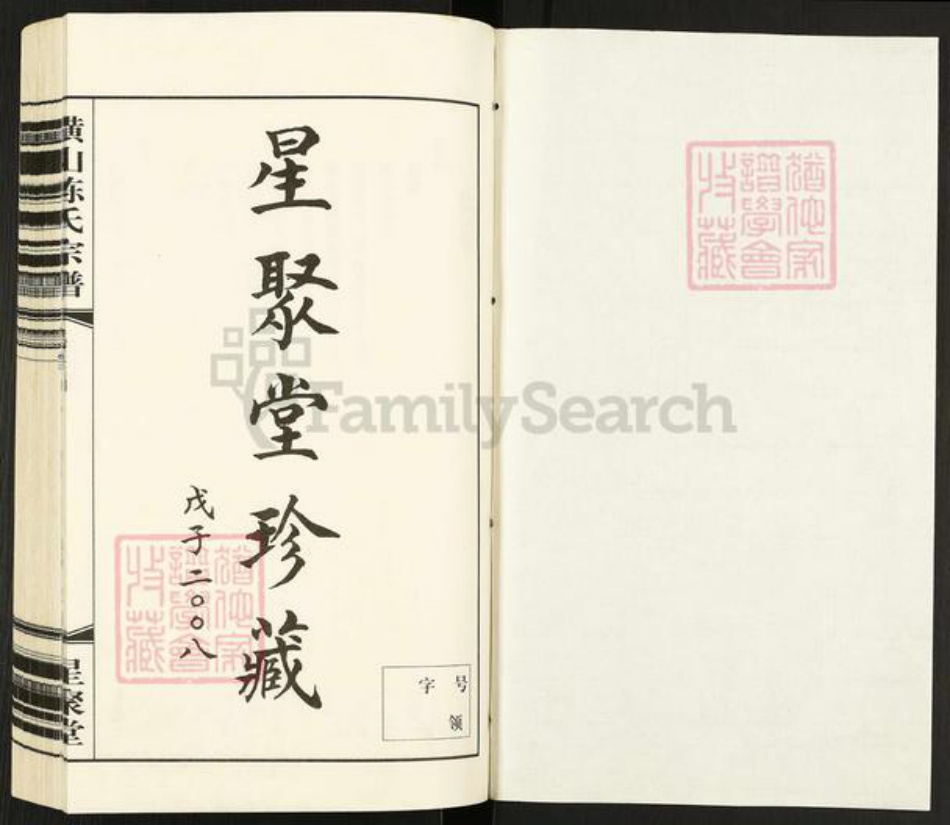 猶他家
譜學會
收藏
星聚堂珍藏
戊子二〇〇八
猶他家
譜學會
收藏
号
字
领
横山陈氏宗谱
星聚堂
FamilySearch